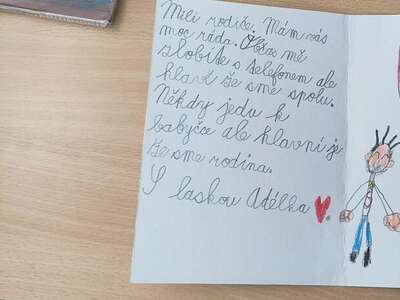 Milí rodiče. Mám vás
moc ráda. Občas mě
zlobíte s telefonem ale
hlavě že sme spolu.
Někdy jedu k
babyčce ale hlavní je
že sme rodina.
S laskou Adélka